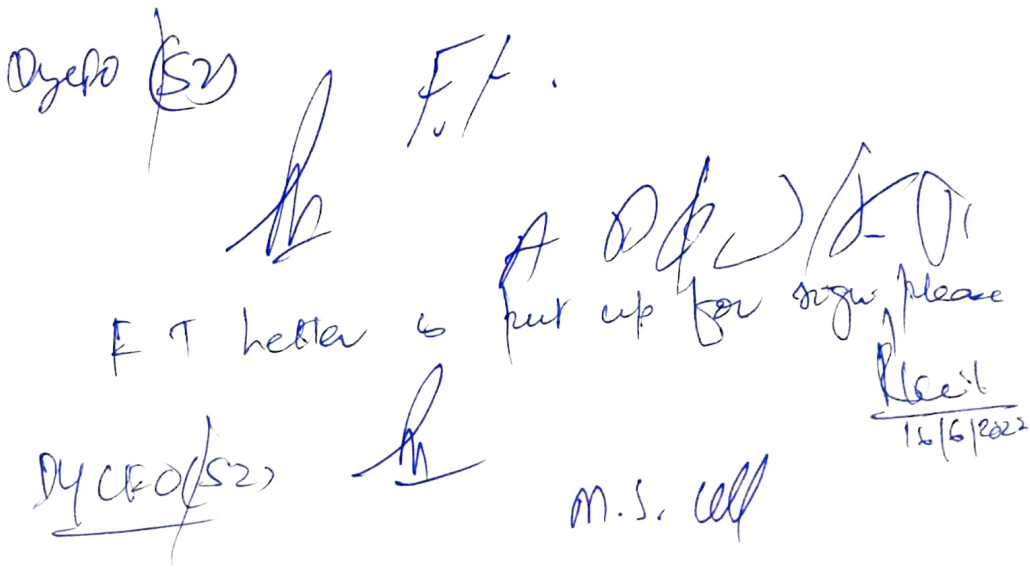 DyCEO (S2)
F.T.
F T Letter is put up for sign please
16/6/2022
DYCEO(S2)
M.S. Cell